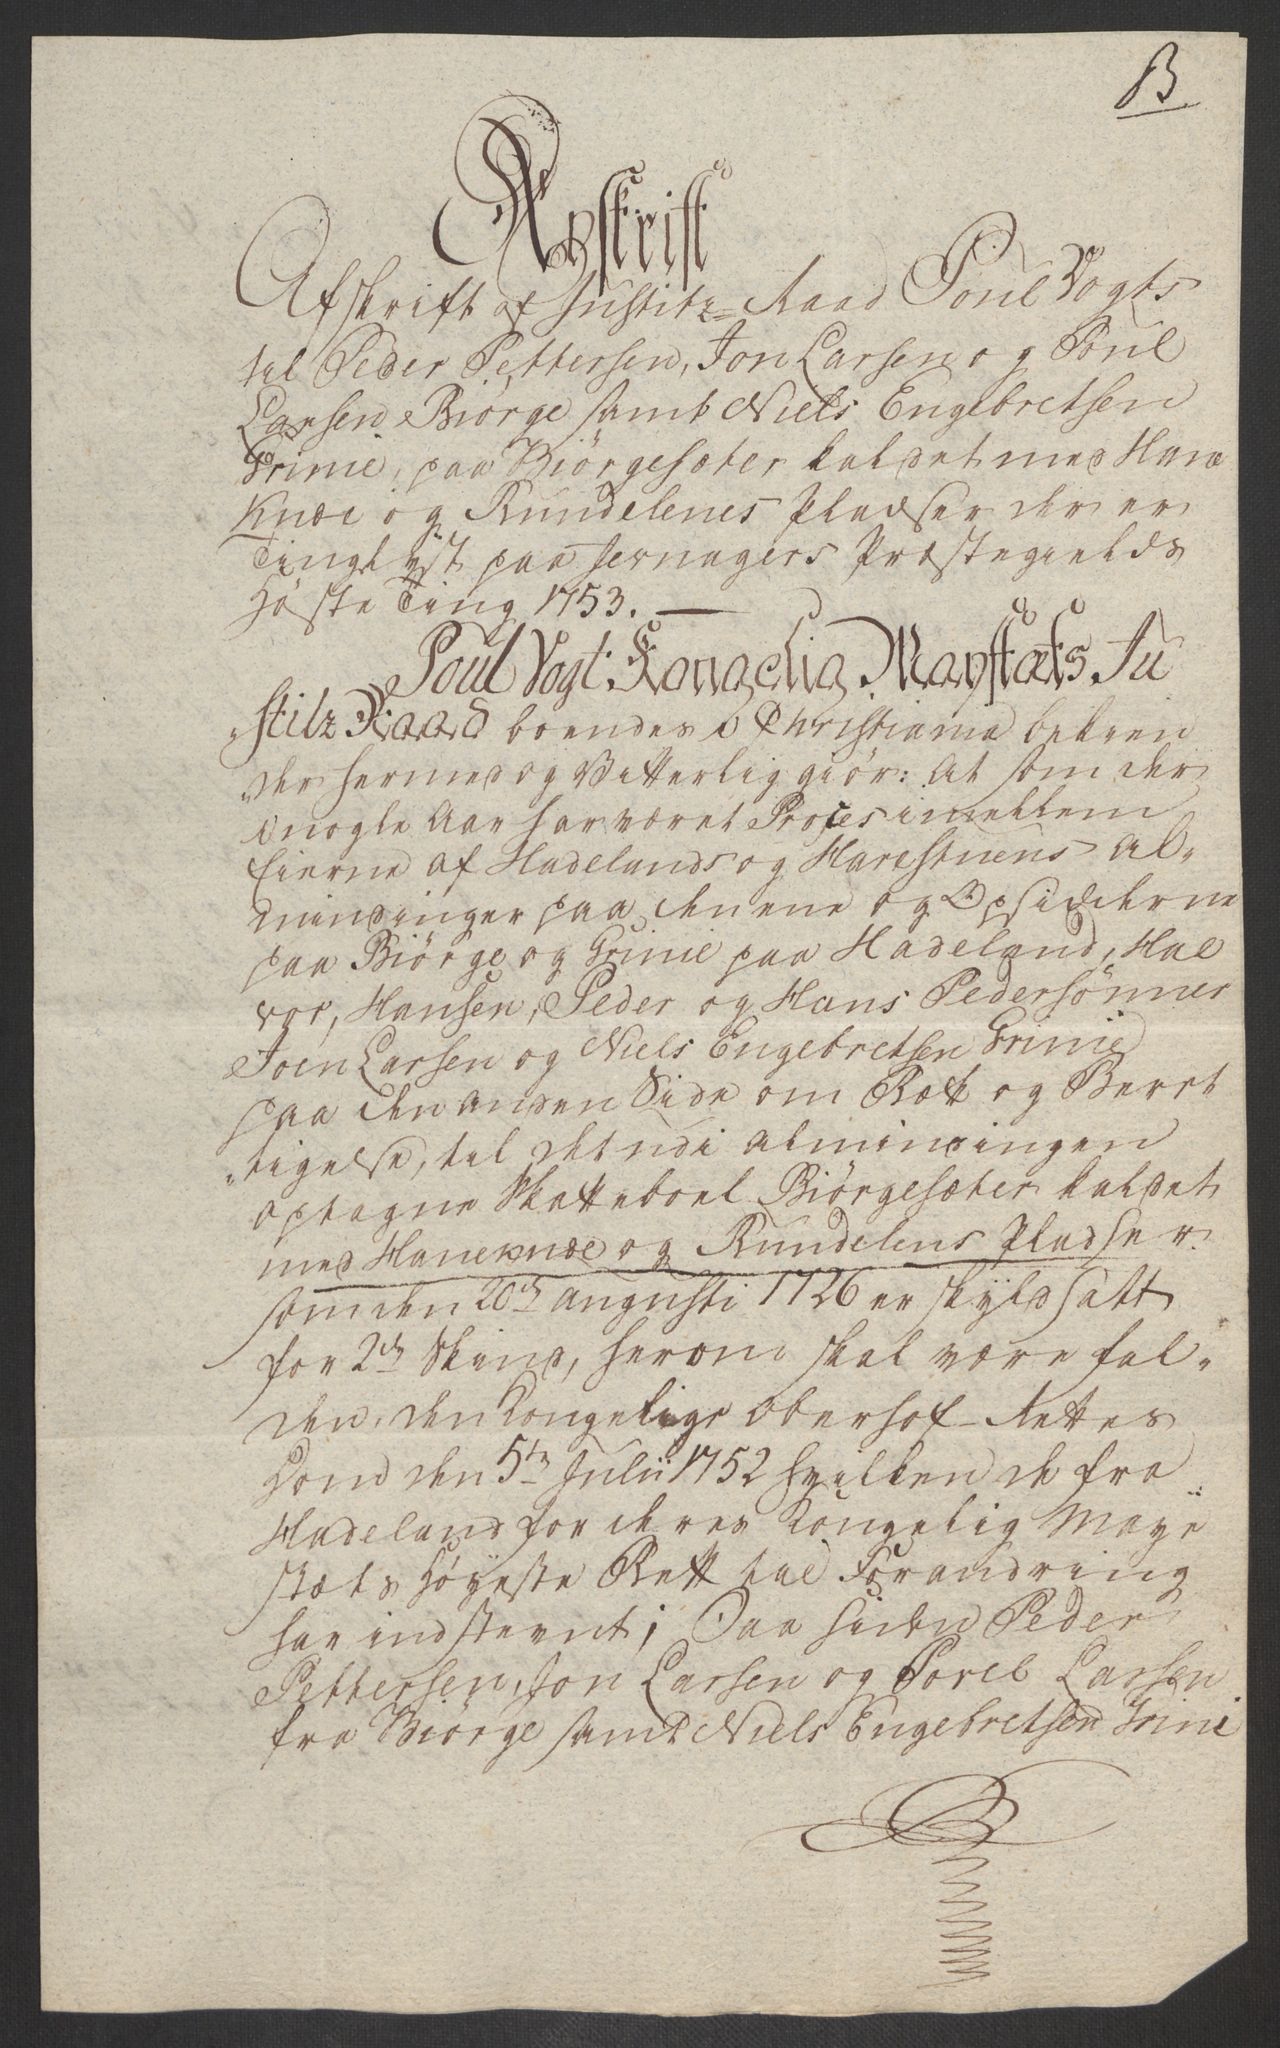 B
Apskrift
Afskrift af Justitz=Raad Poul Vogts
til Peder Pettersen, Jon Larsen og Poul
Larsen Biörge samt Niels Engebretsen
Grinie, paa Biörgesæter kaldet med Hane
Knæe og Rundelenes Pladser der er
Tinglyst paa Jevnagers Præstegields
Höste Ting 1753. —
Poul Vogt Kongelig Mayestæts Ju
„stitz Raad boendes i Christiania bekien
„der hermed og Vitterlig giör: At som der
i nogle Aar har været Proces imellem
Eierne af Hadelands og Harestuens Al„
mindinger paa den ene og Opsidderne
paa Biörge og Grinie paa Hadeland, Hal
vor, Hansen, Peder og Hans Pedersönner
Joen Larsen og Niels Engebretsen Grinie
paa den anden Side om Rætt og Berret
„tigelse, til det udi Almindingen
optagne Skatteboel Biörgesæter kaldet
med Haneknæe og Rundelens Pladser
som den 20de Augusti 1726 er skyldsatt
for 2de Skind, herom skal være fal„
den, den Kongelige Oberhof-Rettes
Dom den 5te Julii 1752 hvilken de fra
Hadeland for deres Kongelig Maye
stæts Höyeste Rett til Forandring
har indstevnt; Saa siden Peder
Pettersen, Jon Larsen og Povel Larsen
fra Biörge samt Niels Engebretsen Grinie